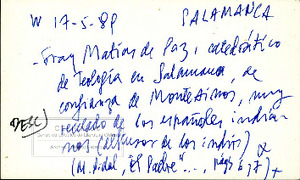 W 17-5-89 SALAMANCA
- Fray Matías de Paz, catedrático
de Teología en Salamanca, de
confianza de Montesinos, muy
de los españoles india-
DESC
nos (defensor de los indios)
(M. Vidal, "El Padre"..., págs 6, 7) +